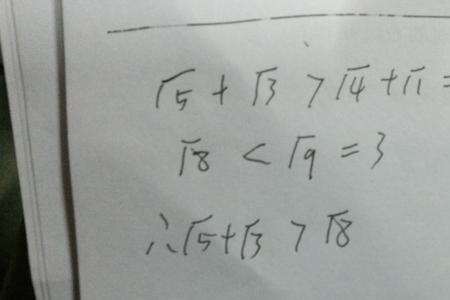 √5 + √3 > √4 + √1 =
√8 < √9 = 3
∴ √5 + √3 > √8